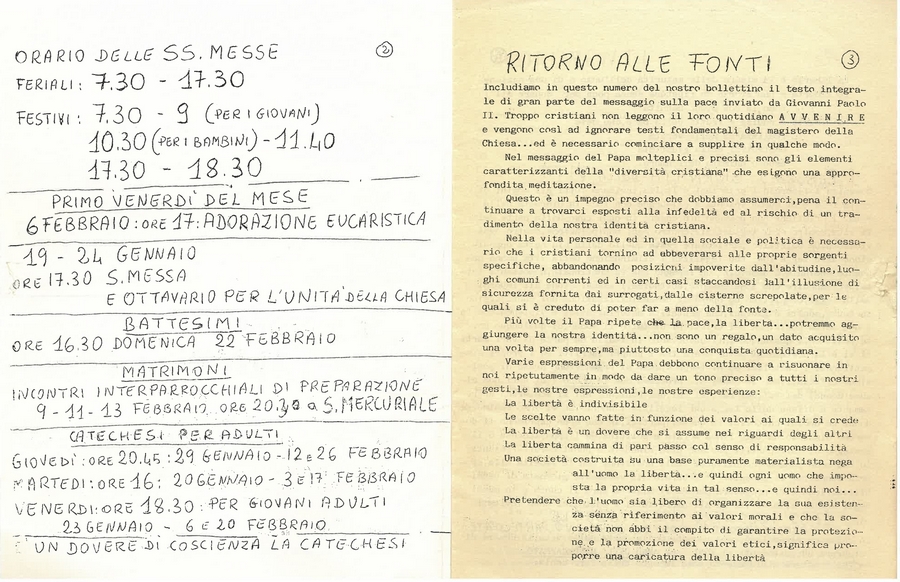 ORARIO DELLE SS. MESSE
2
FERIALI: 7.30 - 17.30
FESTIVI: 7.30 - 9 (PER I GIOVANI)
10.30 (PER I BAMBINI) - 11.40
17.30 - 18.30
PRIMO VENERDÌ DEL MESE
6 FEBBRAIO: ORE 17: ADORAZIONE EUCARISTICA
19 - 24 GENNAIO
ORE 17.30 S. MESSA
E OTTAVARIO PER L'UNITA' DELLA CHIESA
BATTESIMI
ORE 16.30 DOMENICA 22 FEBBRAIO
MATRIMONI
INCONTRI INTERPARROCCHIALI DI PREPARAZIONE
9 - 11 - 13 FEBBRAIO ORE 20.30 a S. MERCURIALE
CATECHESI PER ADULTI
GIOVEDÌ: ORE 20.45: 29 GENNAIO - 12 e 26 FEBBRAIO
MARTEDI: ORE 16: 20 GENNAIO - 3 e 17 FEBBRAIO
VENERDI: ORE 18.30: PER GIOVANI ADULTI
23 GENNAIO - 6 E 20 FEBBRAIO
E' UN DOVERE DI COSCIENZA LA CATECHESI
RITORNO ALLE FONTI
3
Includiamo in questo numero del nostro bollettino il testo integra-
le di gran parte del messaggio sulla pace inviato da Giovanni Paolo
II. Troppo cristiani non leggono il loro quotidiano A V V E N I R E
e vengono così ad ignorare testi fondamentali del magistero della
Chiesa...ed è necessario cominciare a supplire in qualche modo.
Nel messaggio del Papa molteplici e precisi sono gli elementi
caratterizzanti della "diversità cristiana" che esigono una appro-
fondita meditazione.
Questo è un impegno preciso che dobbiamo assumerci,pena il con-
tinuare a trovarci esposti alla infedeltà ed al rischio di un tra-
dimento della nostra identità cristiana.
Nella vita personale ed in quella sociale e politica è necessa-
rio che i cristiani tornino ad abbeverarsi alle proprie sorgenti
specifiche, abbandonando posizioni impoverite dall'abitudine,luo-
ghi comuni correnti ed in certi casi staccandosi dall'illusione di
sicurezza fornita dai surrogati,dalle cisterne screpolate,per le
quali si è creduto di poter far a meno della fonte.
Più volte il Papa ripete che la pace,la liberta...potremmo ag-
giungere la nostra identità...non sono un regalo,un dato acquisito
una volta per sempre,ma piuttosto una conquista quotidiana.
Varie espressioni del Papa debbono continuare a risuonare in
noi ripetutamente in modo da dare un tono preciso a tutti i nostri
gesti,le nostre espressioni,le nostre esperienze:
La libertà è indivisibile
Le scelte vanno fatte in funzione dei valori ai quali si crede
La libertà è un dovere che si assume nei riguardi degli altri
La libertà cammina di pari passo col senso di responsabilità
Una società costruita su una base puramente materialista nega
all'uomo la libertà...e quindi ogni uomo che impo-
sta la propria vita in tal senso...e quindi noi...
Pretendere che l'uomo sia libero di organizzare la sua esisten-
za senza riferimento ai valori morali e che la so-
cietà non abbi il compito di garantire la protezio-
ne e la promozione dei valori etici,significa pro-
porre una caricatura della libertà